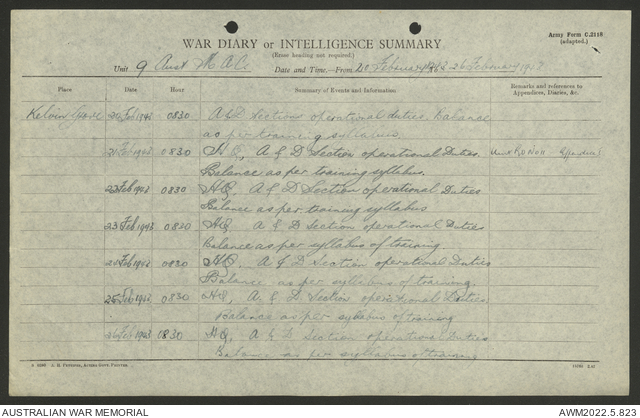 Army Form C.2118
(adapted.)
WAR DIARY or INTELLIGENCE SUMMARY.
(Erase heading not required.)
Unit 9 Aust M.A.C. Date and Time.—From 20 February 1943 26 February 1943
Place Date Hour Summary of Events and Information Remarks and references to Appendices, Diaries, &c.
Kelvin Grove 20 Feb 1943 0830 A & D Sections operational duties. Balance
as per training syllabus.
21 Feb 1943 0830 HQ, A & D Section operational Duties. Unit RO No 11
Balance as per training syllabus.
22 Feb 1943 0830 HQ, A & D Section operational Duties
Balance as per training syllabus
23 Feb 1943 0830 HQ, A & D Section operational Duties
Balance as per syllabus of training
24 Feb 1943 0830 HQ, A & D Section operational Duties
Balance, as per syllabus of training.
25 Feb 1943 0830 HQ, A. & D. Section operational Duties
Balance as per syllabus of training
26 Feb 1943 0830 HQ, A & D Section operational Duties
Balance as per syllabus of training
AUSTRALIAN WAR MEMORIAL AWM2022.5.823